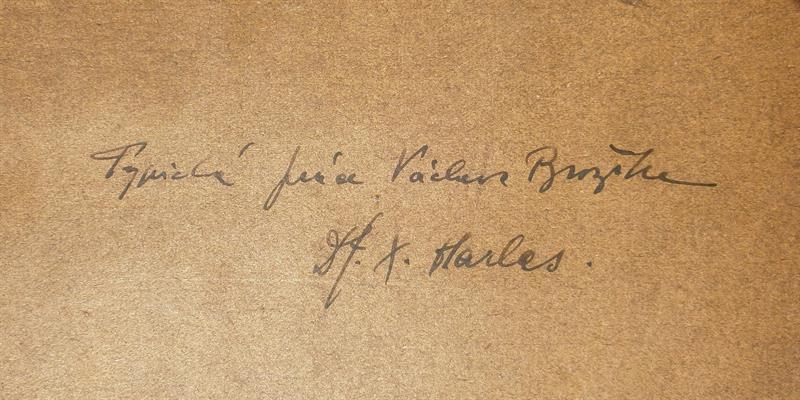 Typická práce Václava Brožíka
Dr. F. X. Harlas.